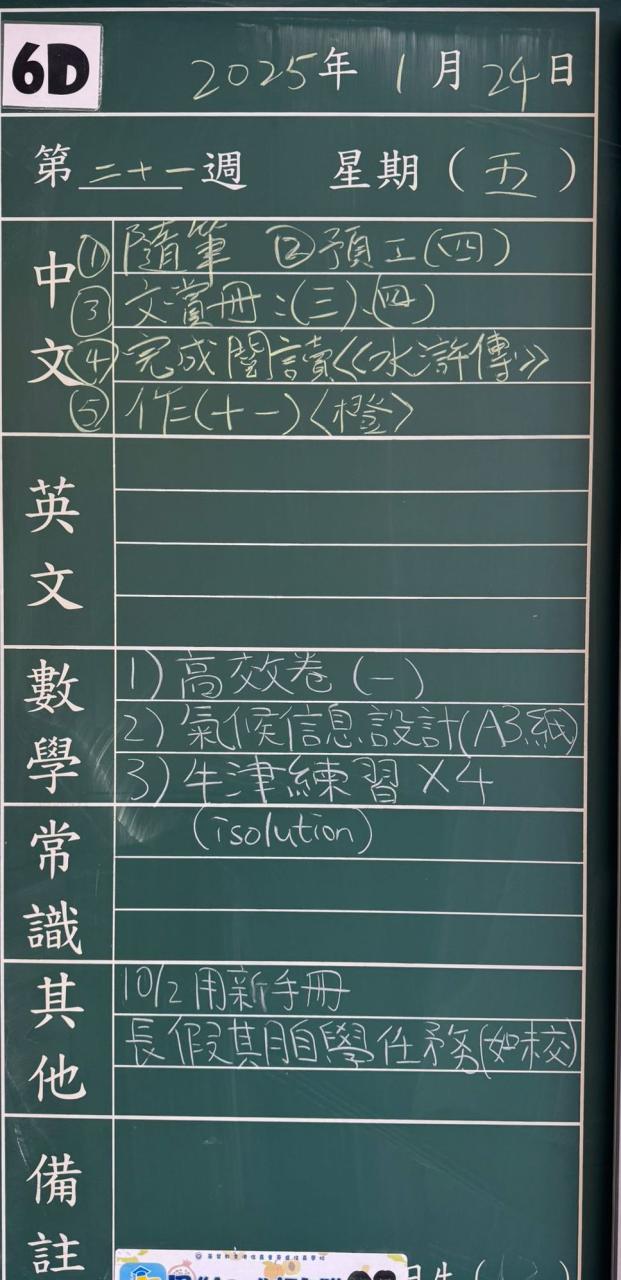 6D
2025年 1月24日
第二十一週 星期(五)
中文
①隨筆 ②預工(四)
③文賞冊:(三)、(四)
④完成閱讀《水滸傳》
⑤作(十一)〈橙〉
英文
數學
1) 高效卷(一)
2) 氣候信息設計(A3紙)
3) 牛津練習 X4
(isolution)
常識
其他
10/2 用新手冊
長假期自學任務(如未交)
備註